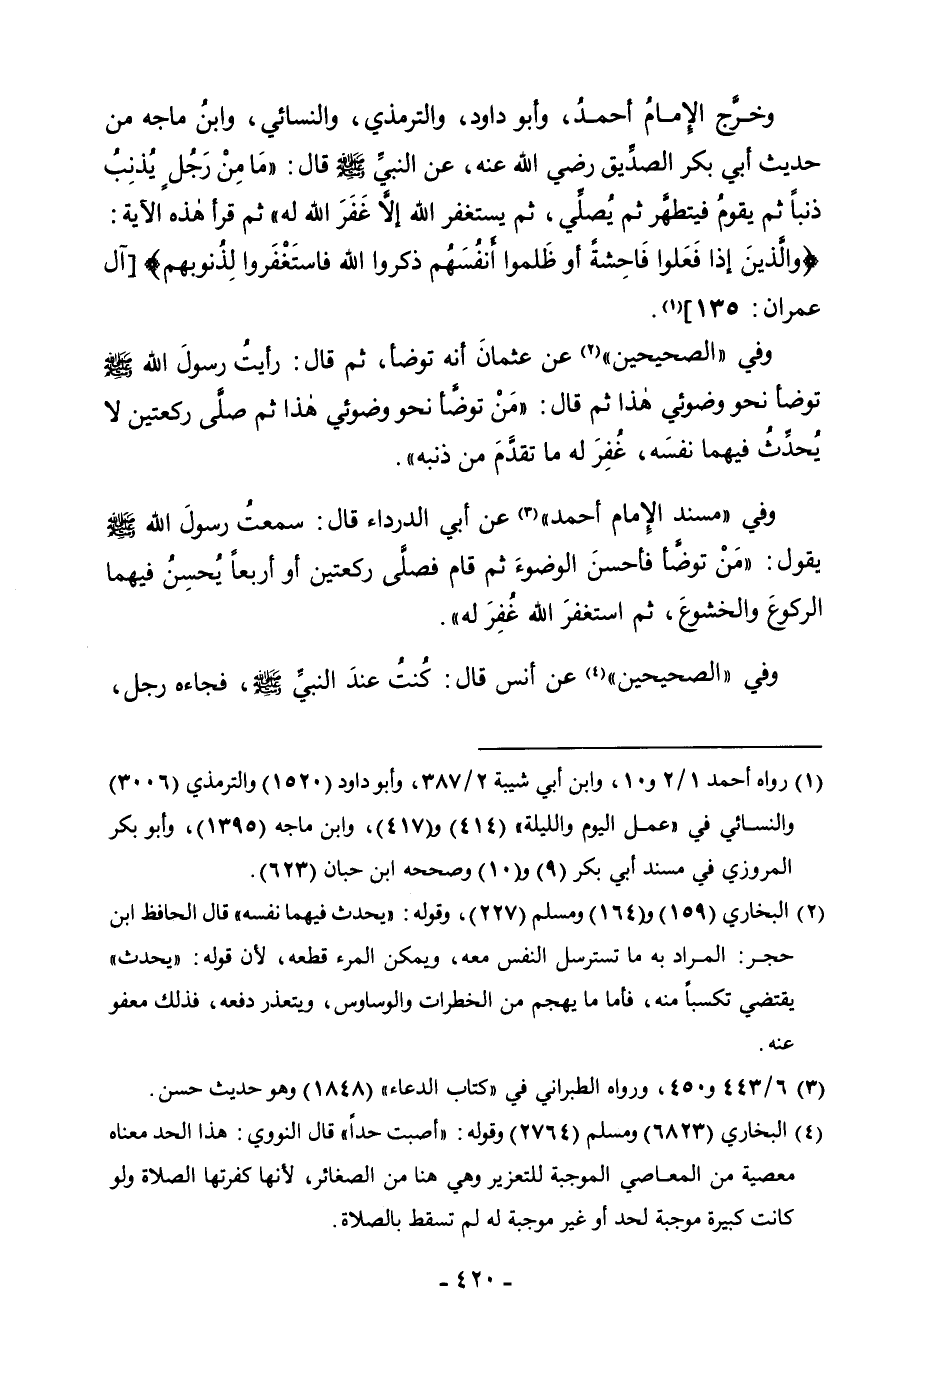 وخرَّج الإمامُ أحمدُ، وأبو داود، والترمذي، والنسائي، وابنُ ماجه من
حديث أبي بكر الصدِّيق رضي الله عنه، عن النبيِّ ﷺ قال: «مَا مِنْ رَجُلٍ يُذنِبُ
ذنباً ثم يقومُ فيتطهَّر ثم يُصلِّي، ثم يستغفر الله إلَّا غَفَرَ الله له» ثم قرأ هٰذه الآية:
﴿والَّذينَ إذا فَعَلوا فَاحِشةً أو ظَلموا أَنفُسَهُم ذكروا الله فاستَغْفَروا لِذُنوبهم﴾ [آل
عمران: ١٣٥](١).
وفي «الصحيحين»(٢) عن عثمانَ أنه توضأ، ثم قال: رأيتُ رسولَ الله ﷺ
توضأ نحو وضوئي هٰذا ثم قال: «مَنْ توضَّأ نحو وضوئي هٰذا ثم صلَّى ركعتين لا
يُحدِّثُ فيهما نفسَه، غُفِرَ له ما تقدَّمَ من ذنبه».
وفي «مسند الإمام أحمد»(٣) عن أبي الدرداء قال: سمعتُ رسولَ الله ﷺ
يقول: «مَنْ توضَّأ فأحسنَ الوضوءَ ثم قام فصلَّى ركعتين أو أربعاً يُحسِنُ فيهما
الركوعَ والخشوعَ، ثم استغفرَ الله غُفِرَ له».
وفي «الصحيحين»(٤) عن أنس قال: كُنتُ عندَ النبيِّ ﷺ، فجاءه رجل،
(١) رواه أحمد ٢/١ و١٠، وابن أبي شيبة ٣٨٧/٢، وأبو داود (١٥٢٠) والترمذي (٣٠٠٦)
والنسائي في «عمل اليوم والليلة» (٤١٤) و(٤١٧)، وابن ماجه (١٣٩٥)، وأبو بكر
المروزي في مسند أبي بكر (٩) و(١٠) وصححه ابن حبان (٦٢٣).
(٢) البخاري (١٥٩) و(١٦٤) ومسلم (٢٢٧)، وقوله: «يحدث فيهما نفسه» قال الحافظ ابن
حجر: المراد به ما تسترسل النفس معه، ويمكن المرء قطعه، لأن قوله: «يحدث»
يقتضي تكسباً منه، فأما ما يهجم من الخطرات والوساوس، ويتعذر دفعه، فذلك معفو
عنه.
(٣) ٤٤٣/٦ و٤٥٠، ورواه الطبراني في «كتاب الدعاء» (١٨٤٨) وهو حديث حسن.
(٤) البخاري (٦٨٢٣) ومسلم (٢٧٦٤) وقوله: «أصبت حداً» قال النووي: هذا الحد معناه
معصية من المعاصي الموجبة للتعزير وهي هنا من الصغائر، لأنها كفرتها الصلاة ولو
كانت كبيرة موجبة لحد أو غير موجبة له لم تسقط بالصلاة.
- ٤٢٠ -